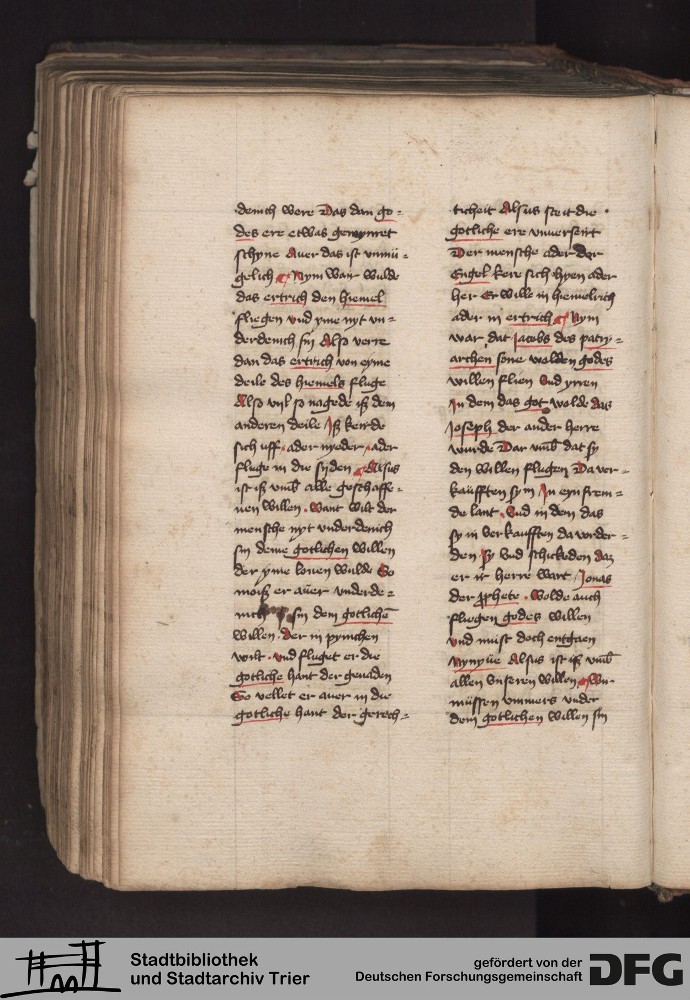 denich were Das dan go=
des ere etwas gemynret
schyne Auer das ist vnmü=
gelich Nym war wulde
das ertrich den hiemel
fliegen vnd yme nyt vn=
derdenich sin Also verre
dan das ertrich von eyme
deile des hiemels fluge
Also vil so nagede iß dem
anderen deile Iß kerde
sich uff ader nyeder ader
fluge in die syden Alsus
ist iß vmb alle geschaffe=
nen willen want wilt der
mensche nyt vnderdenich
sin deme gotlichen willen
der yme lonen wulde So
moiß er auer vnderde=
nich sin dem gotlichen
willen der in pynichen
wilt vnd fluget er die
gotliche hant der genaden
So vellet er auer in die
gotliche hant der gerech=
ticheit Alsus steit die
gotliche ere vnuersert
Der mensche ader der
Engel kere sich hyen ader
her Er wille in hiemelrich
ader in ertrich Nym
war dat Jacobs des patry=
archen sone wolden godes
willen flien vnd yrren
In dem das got wolde das
Joseph der ander herre
wurde Dar vmb dat sy
den willen flugen Da ver=
kaufften sy in In eyn frem=
de lant vnd in dem das
sy in verkaufften da vurder=
den sy vnd schickeden daz
er ir herre wart Jonas
der pphete Wolde auch
fliegen godes willen
vnd muist doch entgaen
Nynyue Alsus ist iß vmb
allen vnseren willen Wir
müssen vmmers vnder
dem gotlichen willen sin
Stadtbibliothek
und Stadtarchiv Trier
gefördert von der
Deutschen Forschungsgemeinschaft
DFG